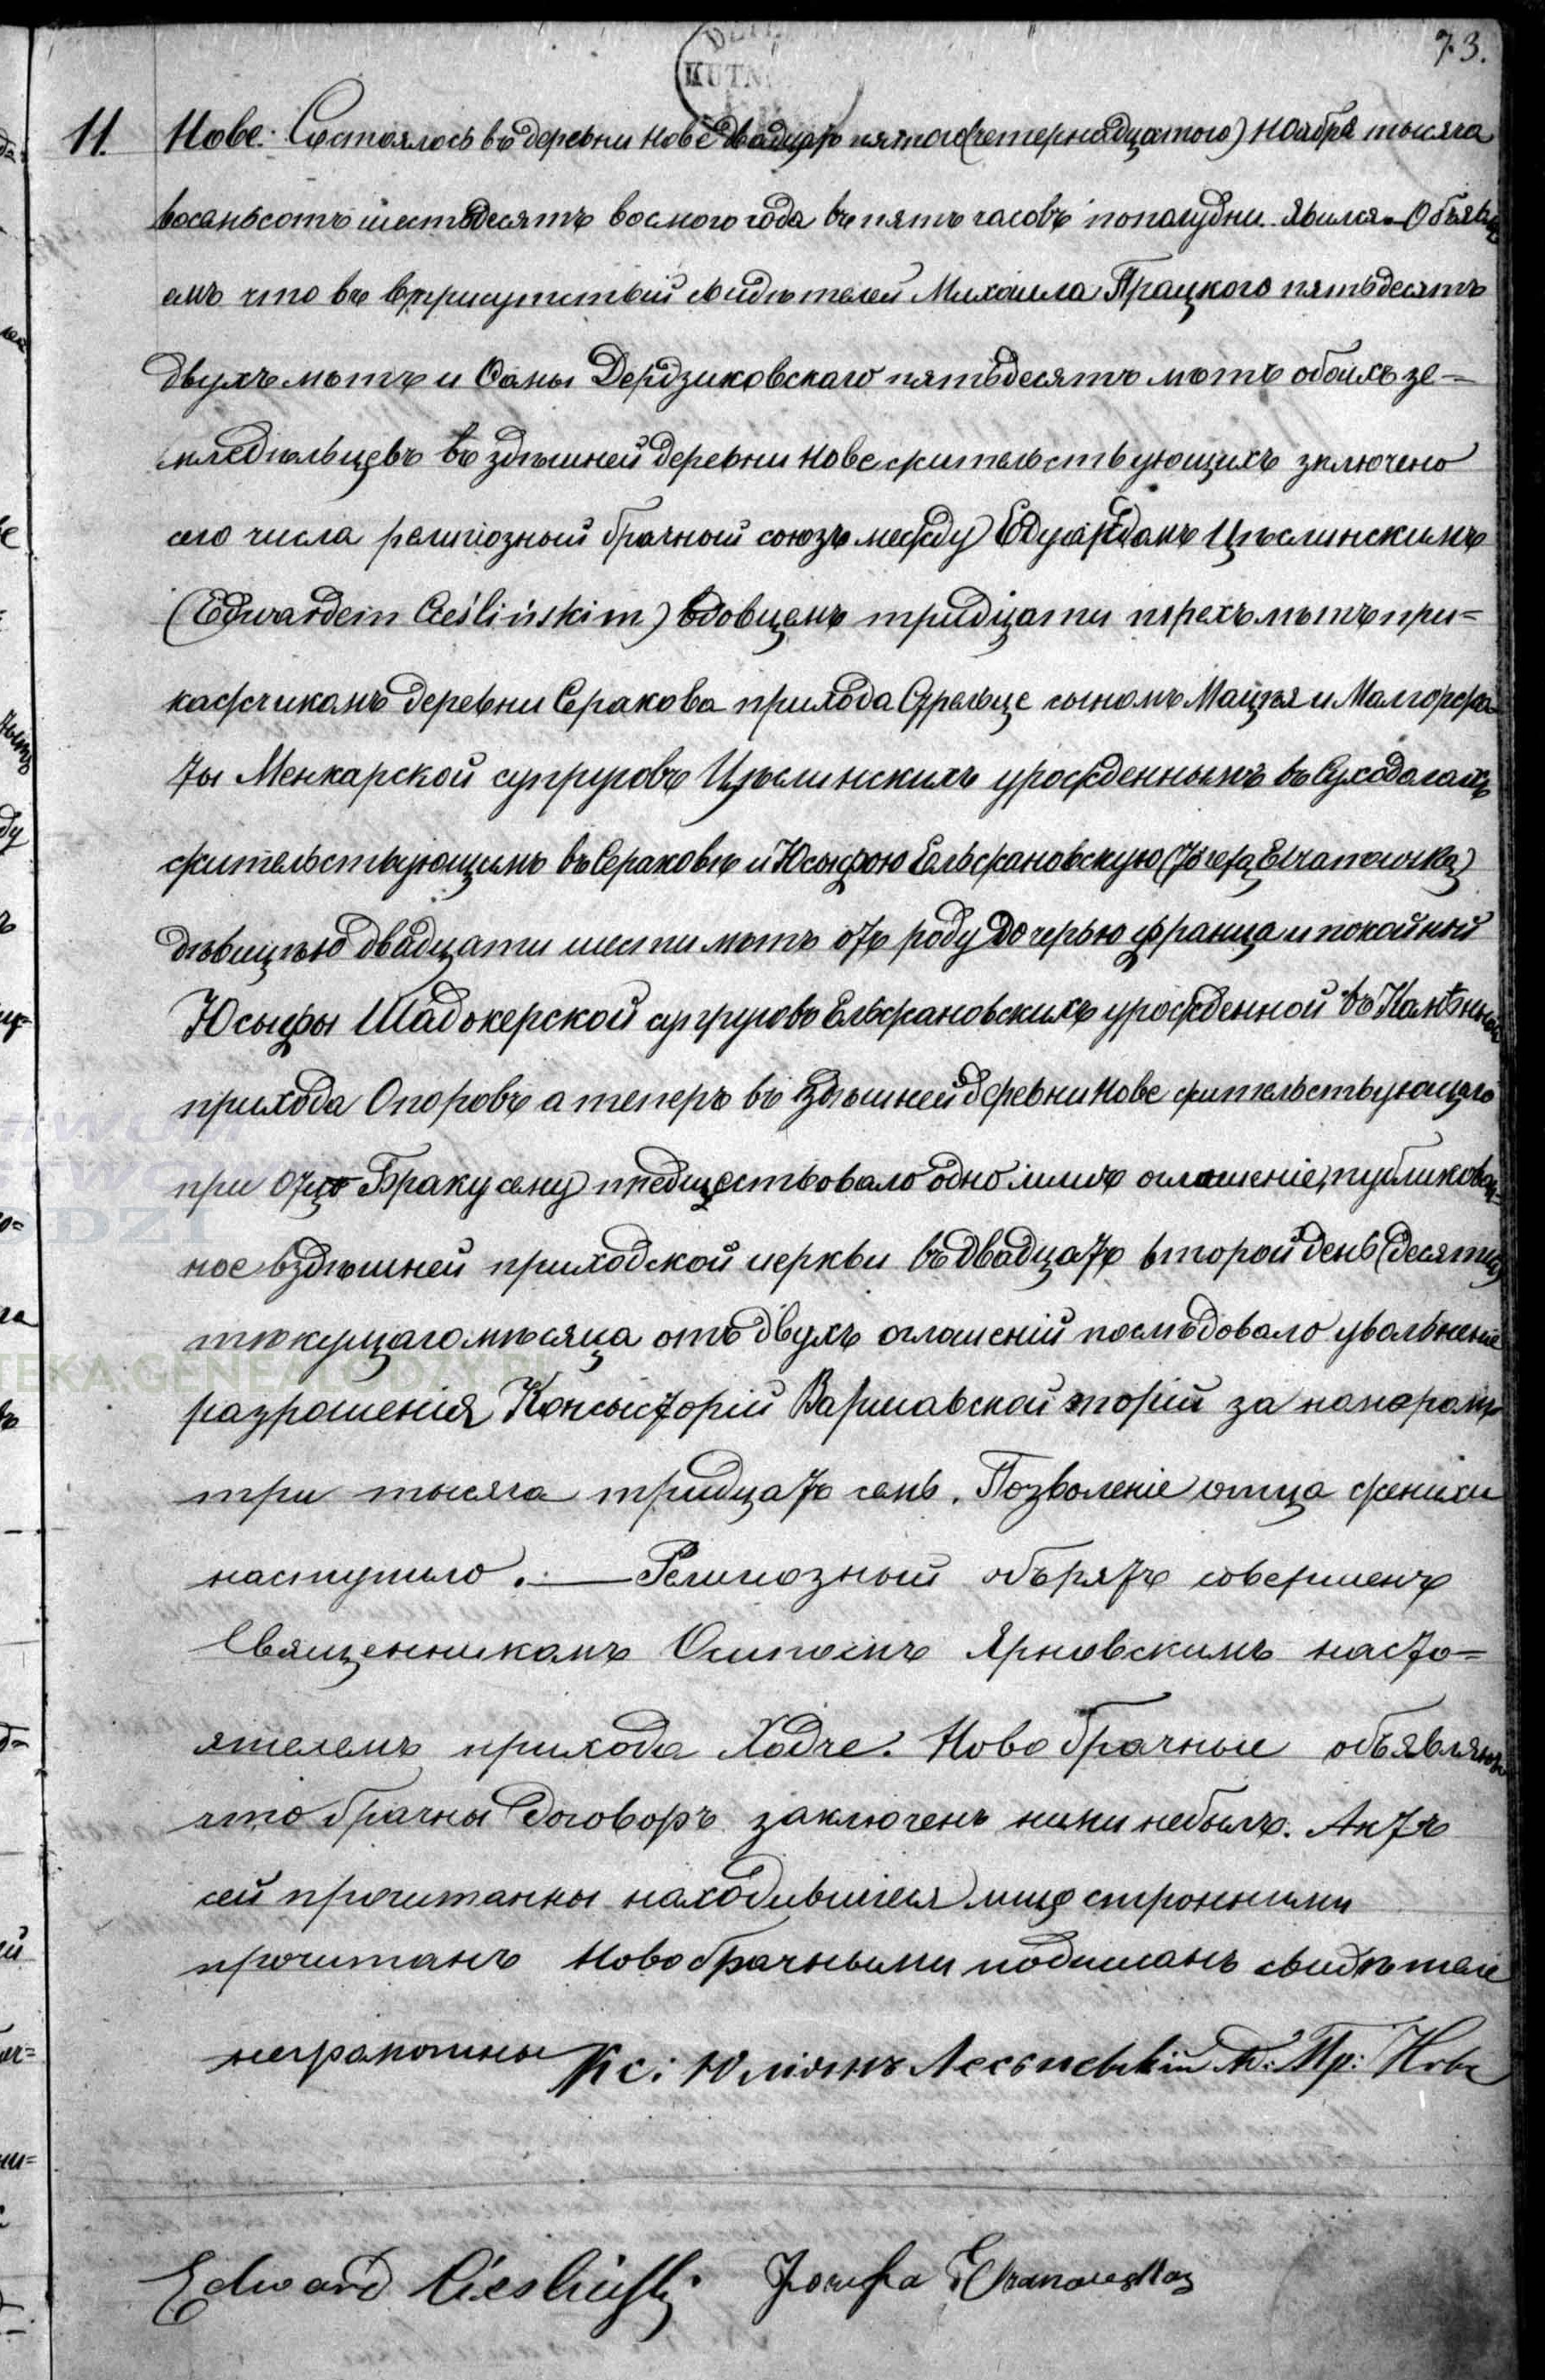 73.
KUTN
11. Нове. Состоялось въ деревни Нове двадцать пятого (четернадцатого) Ноября тысяча
восемьсотъ шестьдесятъ восмого года въ пять часовъ пополудни. Явился Объявля
емъ что въ въ присутствiй свидѣтелей Михаила Працкого пятьдесятъ
двухъ лѣтъ и Фомы Дердзиковскаго пятьдесятъ лѣтъ обоихъ зе-
мледѣльцевъ въ здѣшней деревни Нове жительствующихъ зключено
сего числа религiозный брачной союзъ между Едуардомъ Цѣслинскимъ
(Edwardem Cieślińskim) вдовцемъ тридцати трехъ лѣтъ при-
кажчикомъ деревни Сракова прихода Стрельце сыномъ Мацѣя и Малгоржа-
ты Менкарской супруговъ Цѣслинскихъ урожденнымъ въ Суходолахъ
жительствующимъ въ Сераковѣ и Юсыфою Ельжановскую (Józefą Elżanowską)
дѣвицѣю двадцати шести лѣтъ отъ роду дочерью Франца и покойной
Юсыфы Шадокерской супруговъ Ельжановскихъ урожденной въ
прихода Опоровъ а теперъ въ здѣшней деревни Нове жительствующаго
при отцѣ Браку сему предшествовало одно лишъ оглашенiе, публикован-
ное вздѣшней приходской церкви въ двадцать второй день (десятый)
текущаго мѣсяца отъ двухъ оглашенiй послѣдовало увольненiе
разрѣшенiя Консысторiи Варшавской торiи за номеромъ
три тысяча тридцать семь. Позволенiе отца женихи
наступило. — Религiозный обърятъ совершенъ
Священникомъ Осипомъ Ярновскимъ насто-
ятелемъ прихода Ходче. Новобрачные объявляютъ
что брачны договоръ заключенъ ними небылъ. Актъ
сей прочитанны находившiеся стронными
прочитанъ Новобрачными подписанъ свидѣтеле
неграмотны Кс: Юлiянъ Лесьневскiй Н: Пр: Нове
Edward Ciesliński Józefa Elżanowska